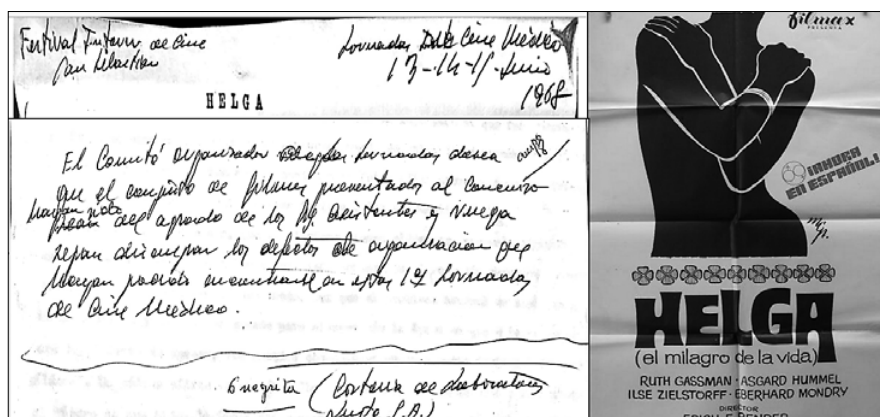 Festival Intern. de Cine
San Sebastian
Jornadas de Cine Médico
13-14-15-Junio
1968
HELGA
El Comité organizador desea
que el conjunto de filmes presentados al Concurso
hayan sido del agrado de los Sres. asistentes y ruega
sepan disculpar los defectos de organización que
hayan podido encontrarse en estas 1as Jornadas
de Cine Médico.
6 negrita (Cortesía de Laboratorios
S.A.)
filmax
PRESENTA
¡AHORA
EN ESPAÑOL!
HELGA
(el milagro de la vida)
RUTH GASSMAN · ASGARD HUMMEL
ILSE ZIELSTORFF · EBERHARD MONDRY
DIRECTOR
ERICH F. BENDER